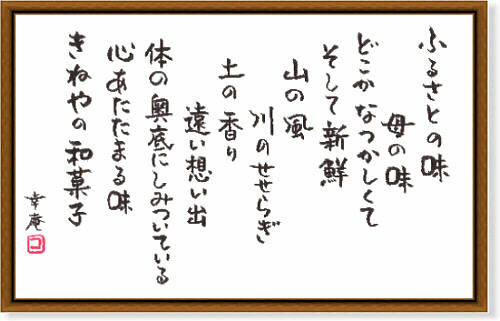 ふるさとの味
母の味
どこかなつかしくて
そして新鮮
山の風
川のせせらぎ
土の香り
遠い想い出
体の奥底にしみついている
心あたたまる味
きねやの和菓子
幸庵